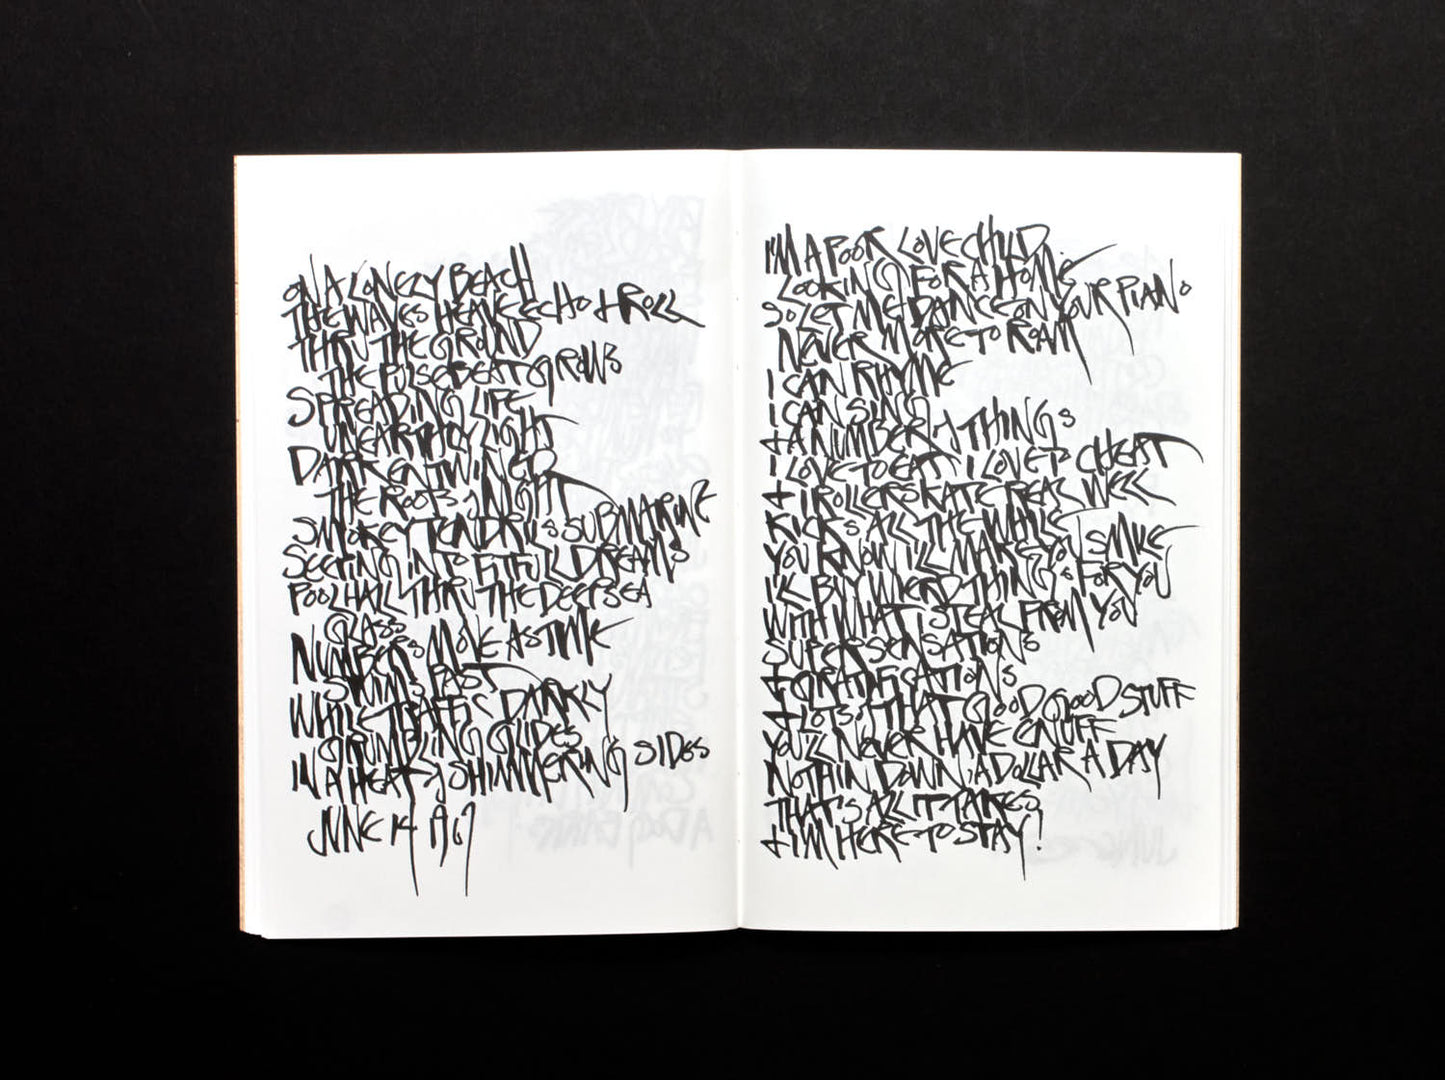 ON A LONELY BEACH
THE WAVES HEAVE ECHO + ROLL
THRU THE GROUND
THE PULSEBEAT GROWS
SPREADING LIFE
UNEARTHLY LIGHT
DARK ENTWINED
THE ROOTS OF NIGHT
SMOKEY TENDRILS SUBMARINE
SEEPING INTO FITFULL DREAMS
POOLHALL THRU THE DEEPSEA
GLASS
NUMBERS MOVE AS TIME
SWIMS PAST
WHILE TRAFFIC DARKLY
GRUMBLING GLIDES
IN A HEAT OF SHIMMERING SIDES
JUNE 14 1967
I'M A POOR LOVE CHILD
LOOKING FOR A HOME
SO LET ME DANCE ON YOUR PIANO
NEVER MORE TO ROAM
I CAN RHYME
I CAN SING
+ A NUMBER OF THINGS
I LOVE TO EAT, I LOVE TO CHEAT
+ I ROLLERSKATE REAL WELL
KICKS ALL THE WHILE
YOU KNOW I'LL MAKE YOU SMILE
I'LL BUY WEIRD THINGS FOR YOU
WITH WHAT I STEAL FROM YOU
SUPER SENSATIONS
+ GRATIFICATIONS
+ LOTS OF THAT GOOD GOOD STUFF
YOU'LL NEVER HAVE ENUFF
NOTHIN DOWN, A DOLLAR A DAY
THAT'S ALL IT TAKES
+ I'M HERE TO STAY!